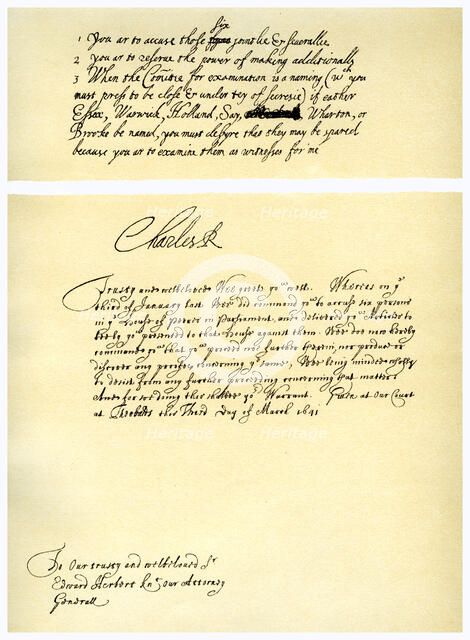 six
1 You ar to accuse those jointlie & severallie
2 you ar to reserve the power of making additionalls
3 When the Comitie for examination is a naming (wch you
must press to be close & under tey of secresie) if eather
Essex, Warwick, Holland, Say, Wharton, or
Brooke be named, you must desyre that they may be spared
because you ar to examine them as witnesses for me
Charles R
Trusty and welbeloved Wee greete you well. Whereas on ye
third of January last Wee did command you to accuse six persons
in ye House of Peeres in Parliament, and delivered you Articles to
be by you presented to that House against them. Wee doe now hereby
command you that you proceed noe further therein, nor produce or
discover any proofes concerning ye same, Wee being minded wholly
to desist from any further proceeding concerning that matter
And for soe doing this shalbe yor Warrant. Given at our Court
at this Third day of March 1641
To Our trusty and welbeloved Sr
Edward Herbert Knt our Attorney
Generall
Heritage
Heritage
Heritage
Heritage